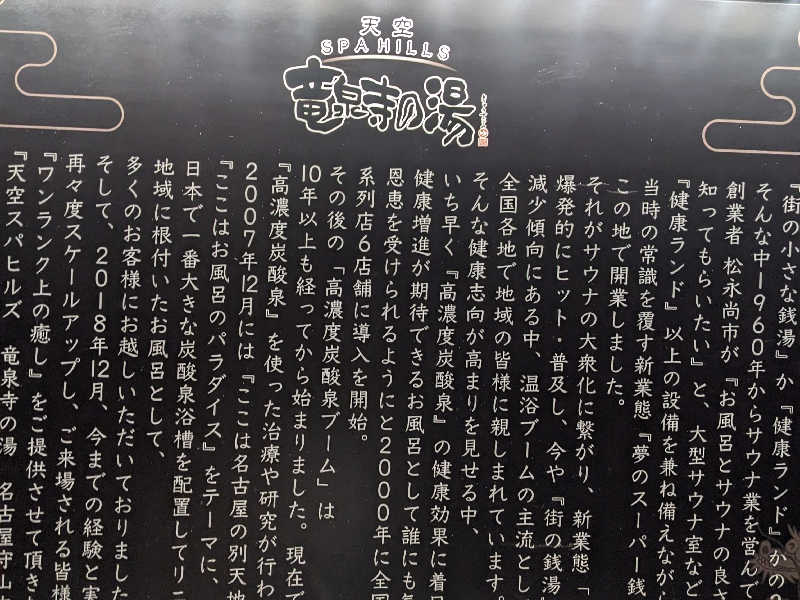 天空
SPA HILLS
竜泉寺の湯
『街の小さな銭湯』か『健康ランド』かの
そんな中1960年からサウナ業を営んで
創業者 松永尚市が『お風呂とサウナの良さ
知ってもらいたい』と、大型サウナ室など
『健康ランド』以上の設備を兼ね備えながら
当時の常識を覆す新業態『夢のスーパー銭
この地で開業しました。
それがサウナの大衆化に繋がり、新業態「
爆発的にヒット・普及し、今や『街の銭湯』
減少傾向にある中、温浴ブームの主流とし
全国各地で地域の皆様に親しまれています。
そんな健康志向が高まりを見せる中、
いち早く『高濃度炭酸泉』の健康効果に着
健康増進が期待できるお風呂として誰にも気
恩恵を受けられるようにと2000年に全国
系列店6店舗に導入を開始。
その後の「高濃度炭酸泉ブーム」は
10年以上も経ってから始まりました。現在で
『高濃度炭酸泉』を使った治療や研究が行わ
2007年12月には『ここは名古屋の別天地
『ここはお風呂のパラダイス』をテーマに、
日本で一番大きな炭酸泉浴槽を配置してリニ
地域に根付いたお風呂として、
多くのお客様にお越しいただいておりました
そして、2018年12月、今までの経験と実
再々度スケールアップし、ご来場される皆様
『ワンランク上の癒し』をご提供させて頂き
『天空スパヒルズ 竜泉寺の湯 名古屋守山